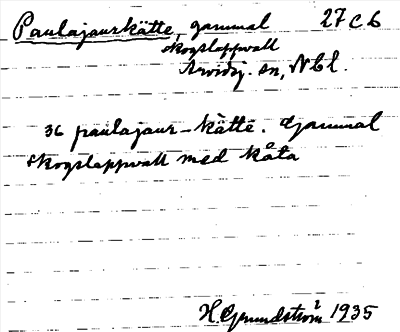 Paulajaurkåtte, gammal 27 C b
skogslappvall
Arvidsj. sn, Nbl.
36 paulajaur-kåtte. Gammal
skogslappvall med kåta
H. Grundström 1935